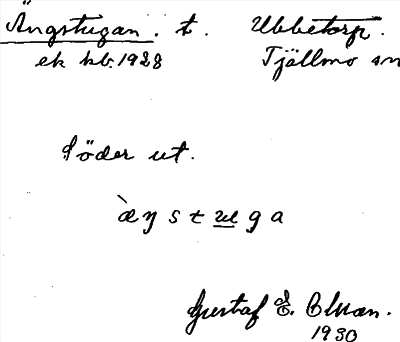 Ängstugan. t. Ubbetorp.
ek kb. 1928 Tjällmo sn
Söder ut.
`æŋstuga
Gustaf E.
1930